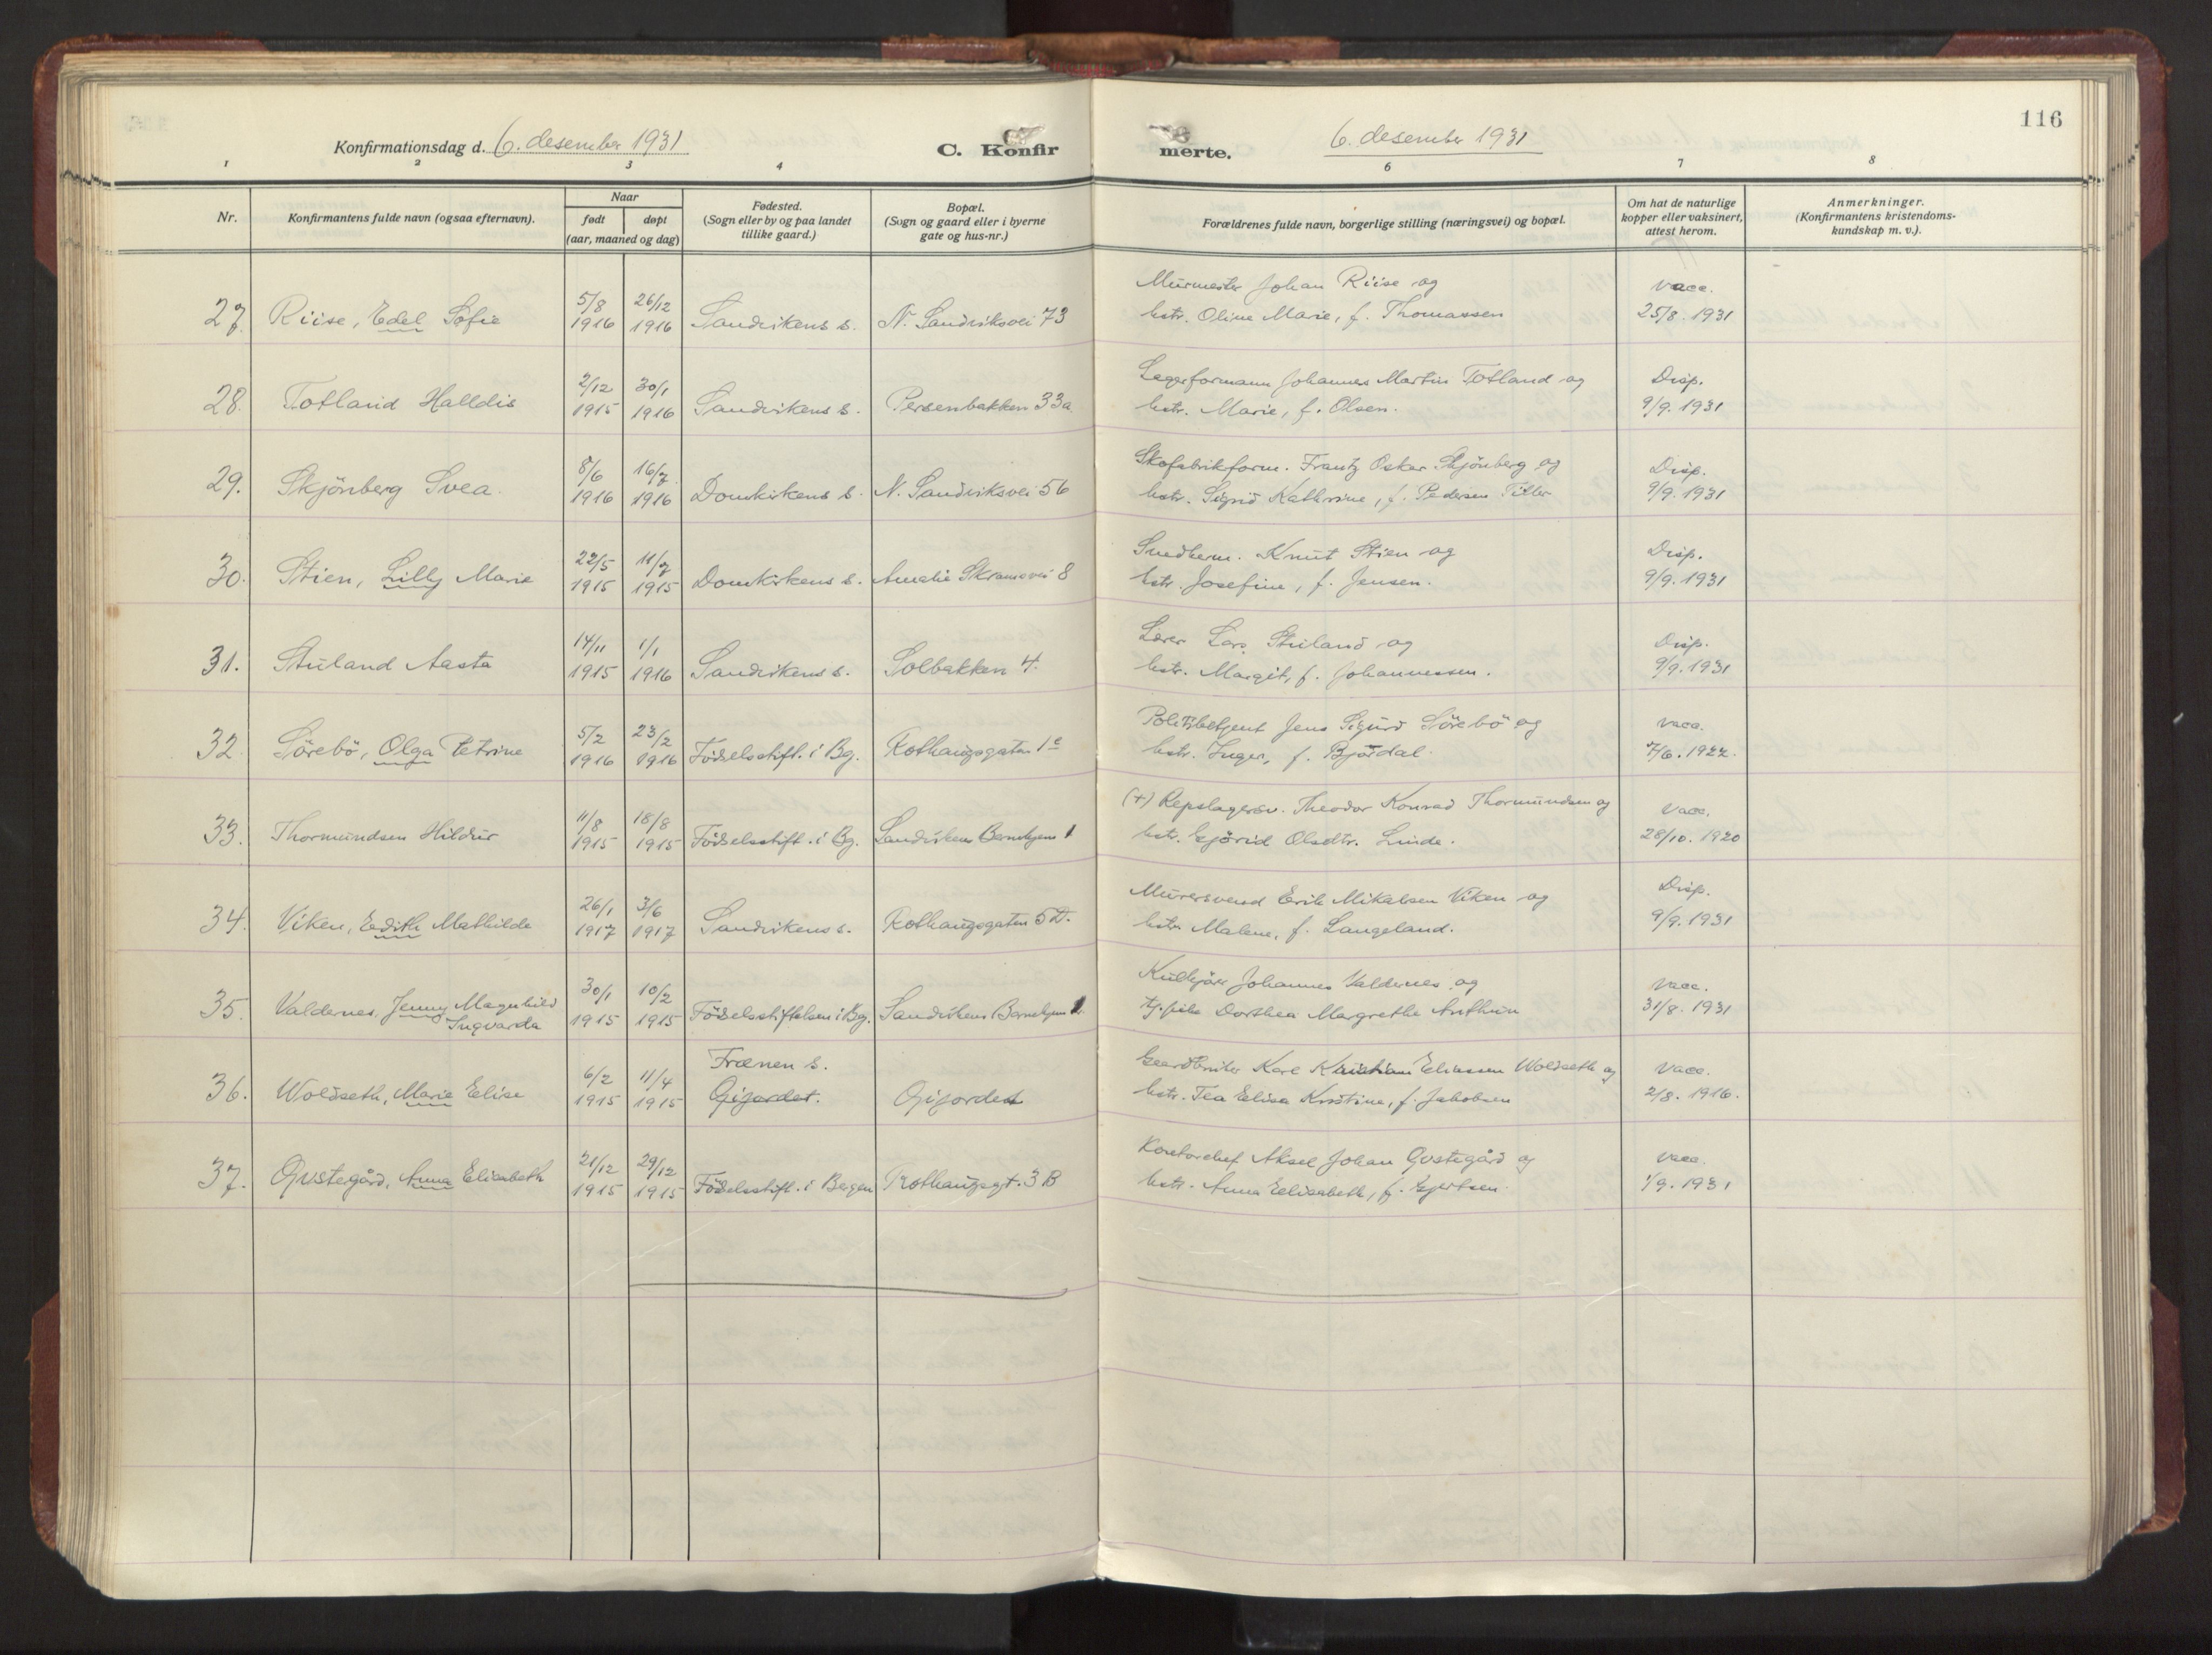 116
Konfirmationsdag d. 6. desember 1931
C. Konfir
merte.
6. desember 1931
1 2 3 4 6 7 8
Nr.
Konfirmantens fulde navn (ogsaa efternavn).
Naar
født døpt
(aar, maaned og dag)
Fødested.
(Sogn eller by og paa landet
tillike gaard.)
Bopæl.
(Sogn og gaard eller i byerne
gate og hus-nr.)
Forældrenes fulde navn, borgerlige stilling (næringsvei) og bopæl.
Om hat de naturlige
kopper eller vaksinert,
attest herom.
Anmerkninger.
(Konfirmantens kristendoms-
kundskap m. v.).
5/8 26/12 Murmester Johan Riise og vacc.
27. Riise, Edel Sofie 1916 1916 Sandvikens s. N. Sandviksvei 73 hstr. Oline Marie, f. Thomassen 25/8. 1931
2/12 30/1 Lagerformann Johannes Martin Totland og Disp.
28. Totland Halldis 1915 1916 Sandvikens s. Persenbakken 33a hstr. Marie, f. Olsen. 9/9. 1931
8/6 16/7 Skofabrikform. Frantz Oskar Skjönberg og Disp.
29. Skjönberg Svea. 1916 1916 Domkirkens s. N. Sandviksvei 56 hstr. Sigrid Kathrine, f. Pedersen Tiller 9/9. 1931
22/5 11/7 Snedkerm. Knut Stien og Disp.
30. Stien, Lilly Marie 1915 1915 Domkirkens s. Amalie Skramsvei 8 hstr. Josefine, f. Jensen. 9/9. 1931
14/11 1/1 Lærer Lars Stuland og Disp.
31. Stuland Aasta 1915 1916 Sandvikens s. Solbakken 4. hstr. Margit, f. Johannessen. 9/9. 1931
5/2 23/2 Politibetjent Jens Sigurd Sörebö og vacc.
32. Sörebö, Olga Petrine 1916 1916 Födselsstift. i Bg. Rothaugsgaten 1c hstr. Inger, f. Bjordal. 7/6. 1922.
11/8 18/8 (+) Repslagersv. Theodor Konrad Thormundsen og vacc.
33. Thormundsen Hildur 1915 1915 Födselsstift. i Bg. Sandvikens Barnehjem 1 hstr. Gjörid Olsdtr. Linde. 28/10. 1920
26/1 3/6 Murersvend Erik Mikalsen Viken og Disp.
34. Viken, Edith Mathilde 1917 1917 Sandvikens s. Rothaugsgaten 5D. hstr. Malene, f. Langeland. 9/9. 1931
30/1 10/2 Kulkjörer Johannes Valdernes og vacc.
35. Valdernes, Jenny Magnhild
Ingvarda 1915 1915 Födselsstiftelsen i Bg. Sandvikens Barnehjem 1. tj.pike Dorthea Margrethe Anthun 31/8. 1931
6/2 11/4 Frænen s. Gaardbruker Karl Kristian Eliassen Woldseth og vacc.
36. Woldseth, Marie Elise 1915 1915 Gijordet. Gijordet hstr. Tea Elisa Kristine, f. Jakobsen 2/8. 1916.
21/12 29/12 Kontorchef Aksel Johan Qvstegård og vacc.
37. Qvstegård, Anna Elisabeth 1915 1915 Födselsstift. i Bergen Rothaugsgt. 3 B hstr. Anna Elisabeth, f. Gjertsen 1/9. 1931